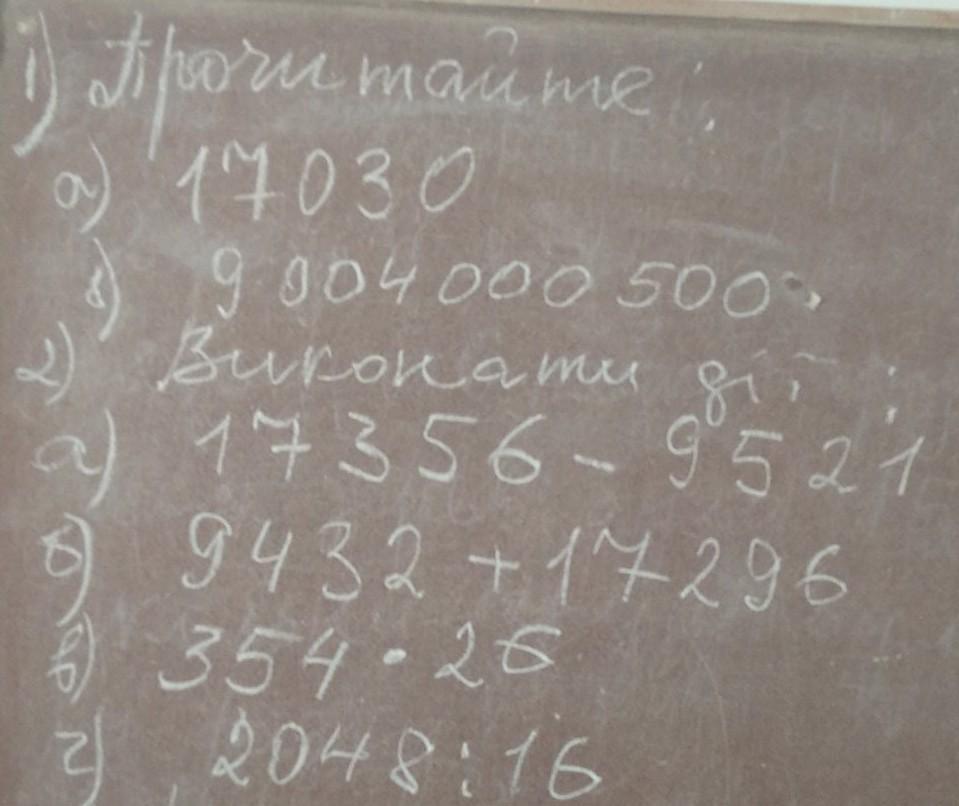 1) Прочитайте:
а) 17030
б) 9 004 000 500
2) Виконати дії:
а) 17356 - 9521
б) 9432 + 17296
в) 354 · 26
г) 2048 : 16